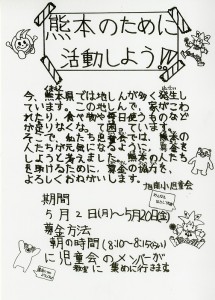 熊本のために
活動しよう!!
今、熊本県では地しんが多く発生し
ています。この地しんで、家がこわ
れたり、食べ物や毎日使うものなど
が足りなくなって困っています。
そこで、私たち児童会では、熊本の
人たちが元気になるように、募金を
しようと考えました。熊本の人たち
を助けるために、募金の協力を、
よろしくおねがいします。
旭南小児童会
期間
5月2日(月)〜5月20日(金)
募金方法
朝の時間(8:10〜8:15ぐらい)
に児童会のメンバーが
教室に集めに行きます